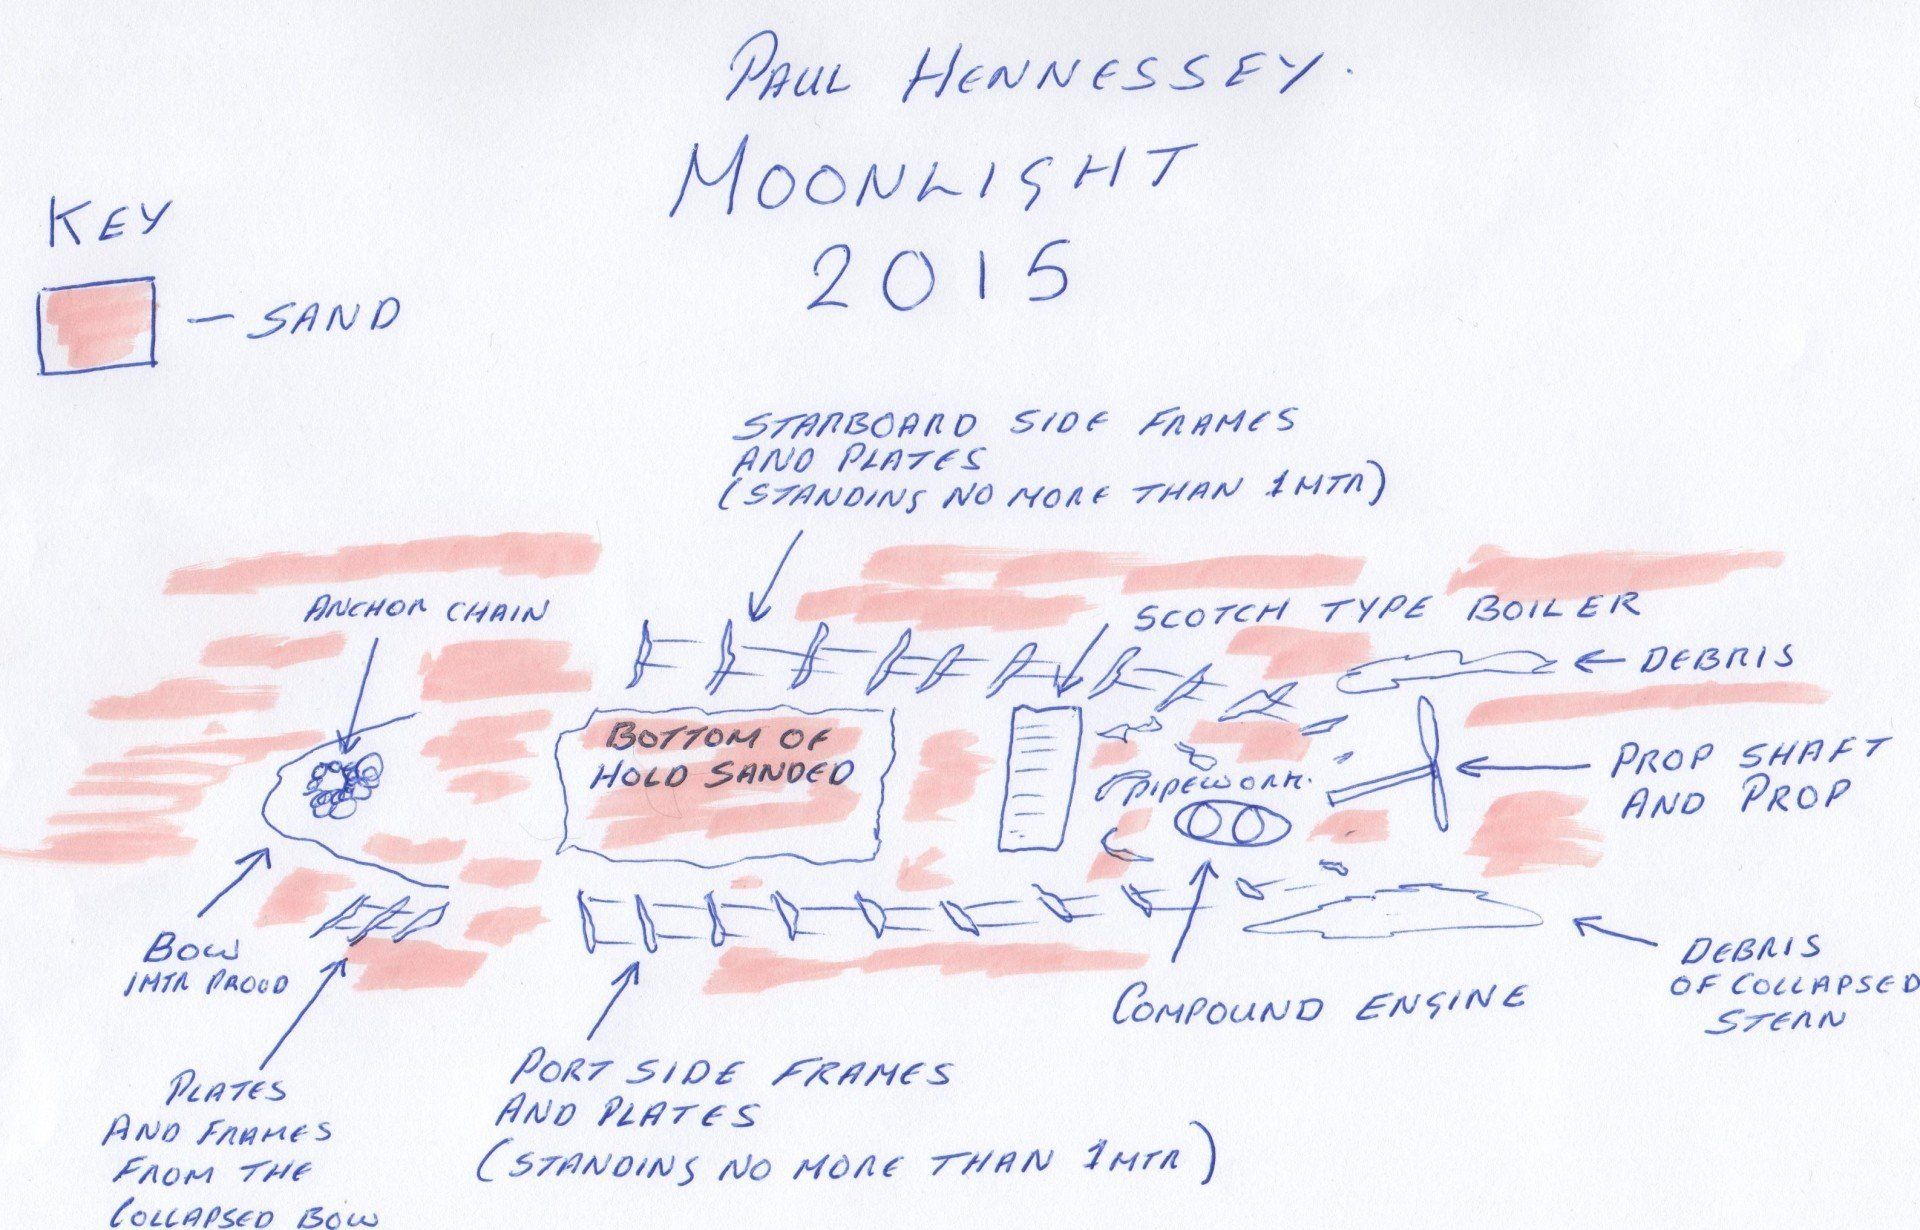 PAUL HENNESSEY.
MOONLIGHT
2015
KEY
- SAND
STARBOARD SIDE FRAMES
AND PLATES
(STANDING NO MORE THAN 1MTR)
ANCHOR CHAIN
SCOTCH TYPE BOILER
DEBRIS
BOTTOM OF
HOLD SANDED
PIPEWORK.
PROP SHAFT
AND PROP
BOW
1MTR PROUD
COMPOUND ENGINE
DEBRIS
OF COLLAPSED
STERN
PLATES
AND FRAMES
FROM THE
COLLAPSED BOW
PORT SIDE FRAMES
AND PLATES
(STANDING NO MORE THAN 1MTR)